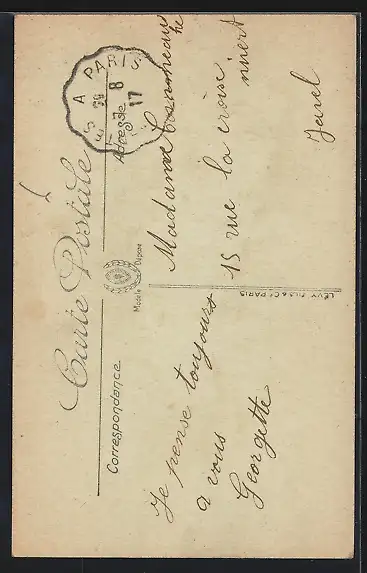 Carte Postale
Correspondance
Adresse
A PARIS
8
17
Modèle Déposé
LÉVY FILS & Cie PARIS
Je pense toujours
a vous
Georgette
Madame
15 rue la croix
nivert